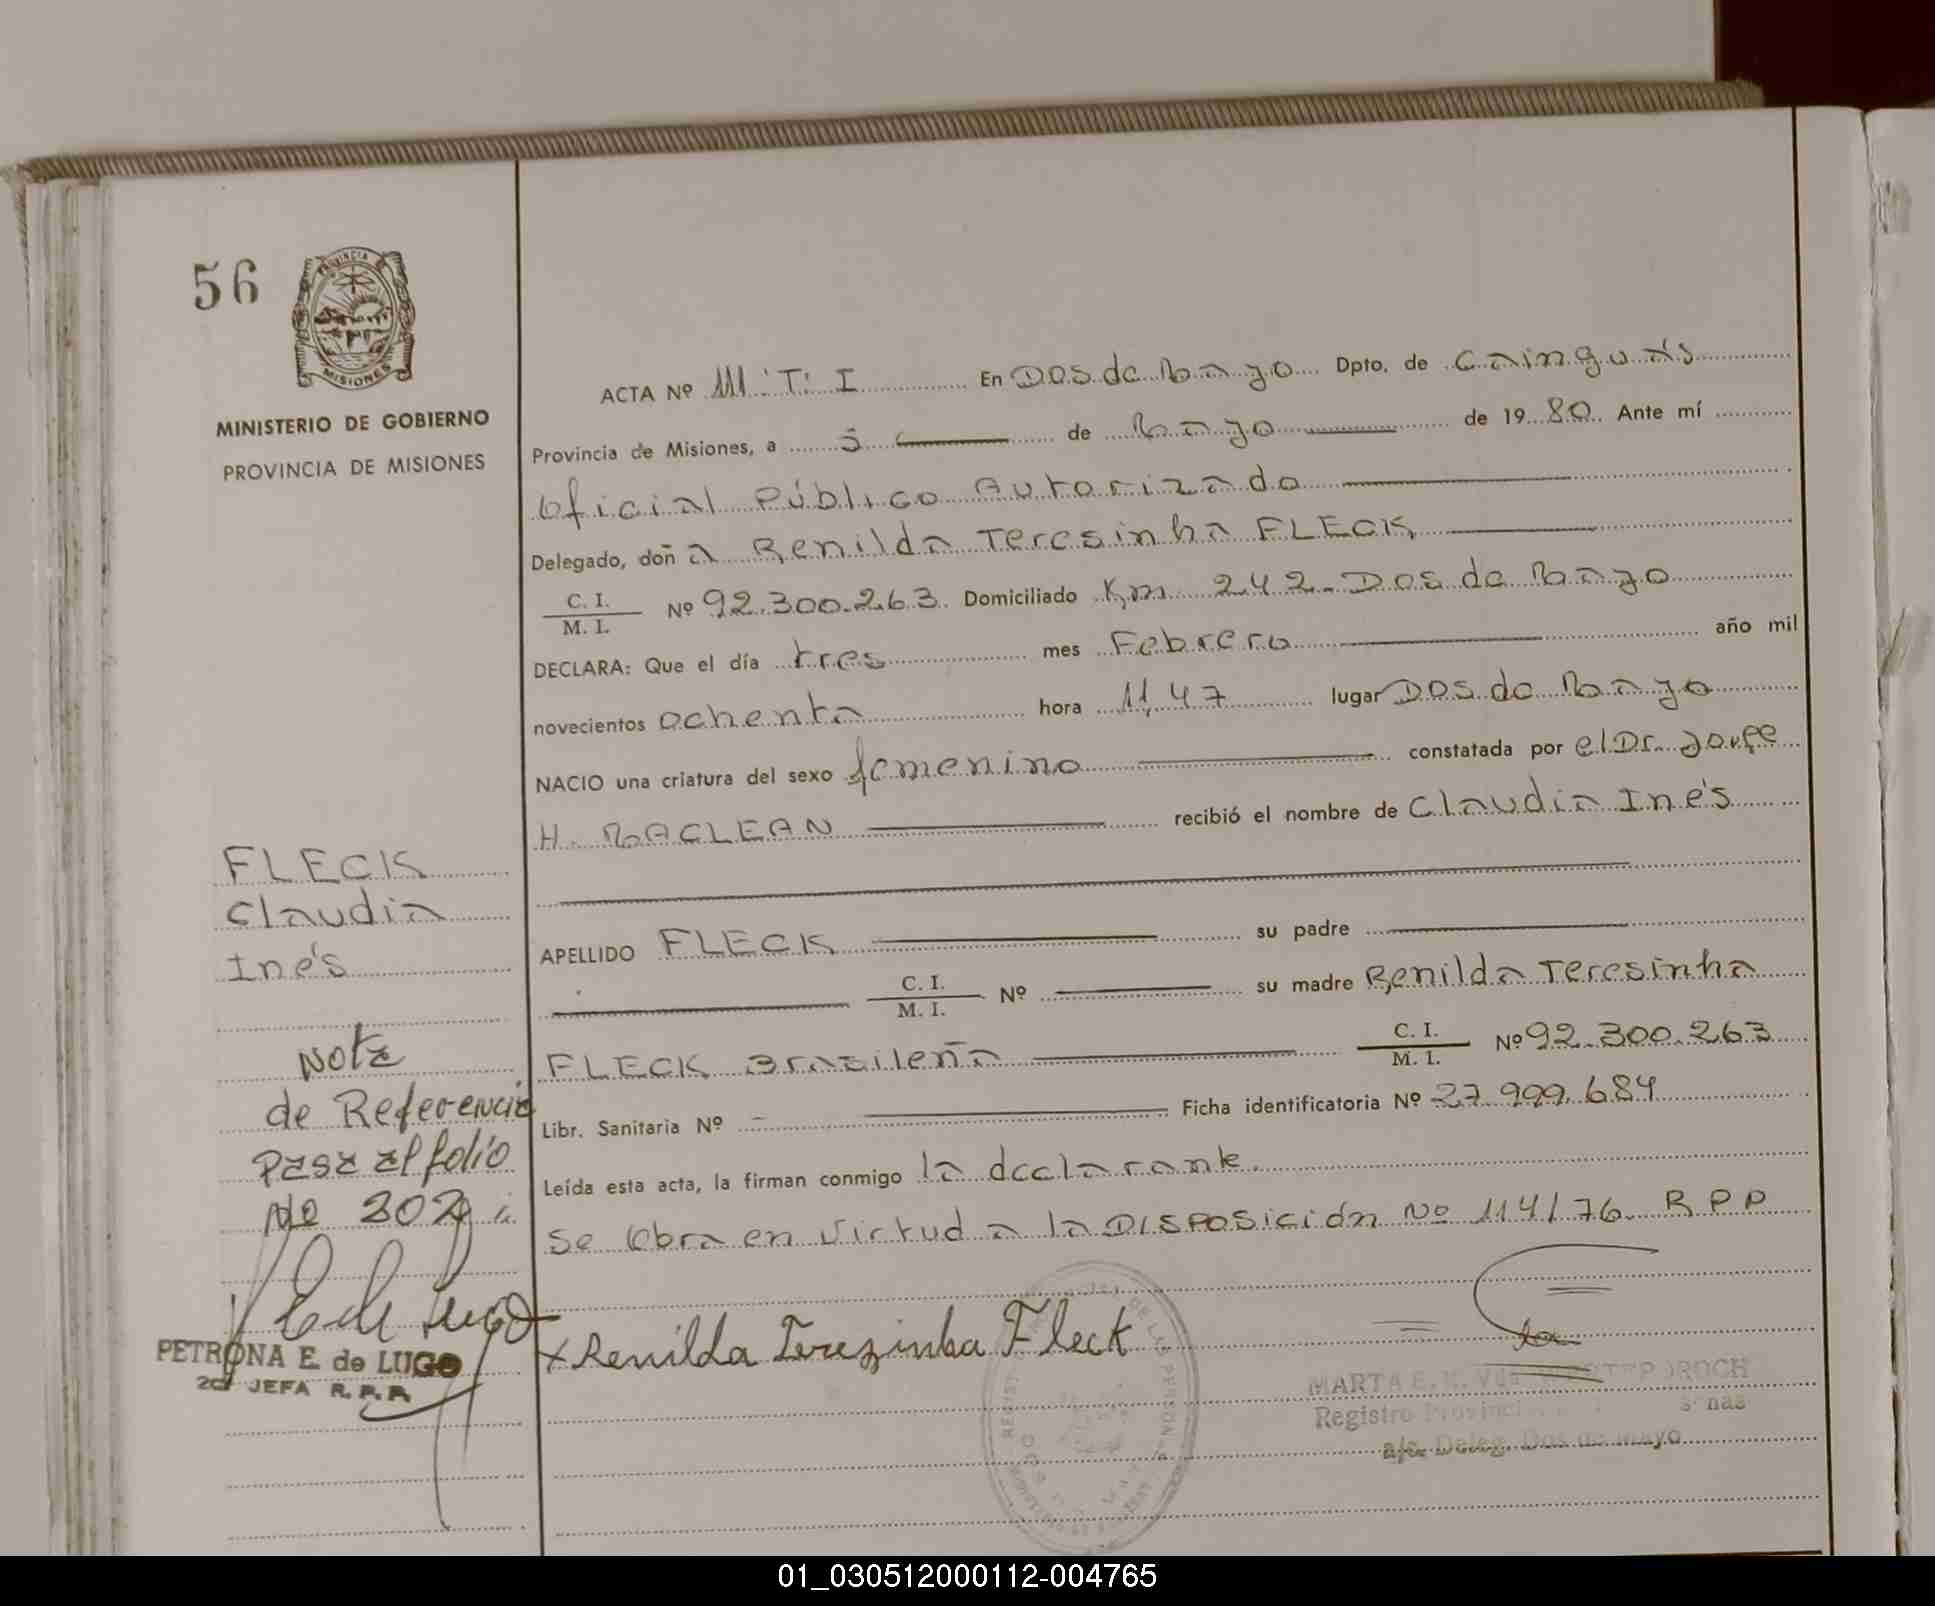 56
PROVINCIA DE
MISIONES
MINISTERIO DE GOBIERNO
PROVINCIA DE MISIONES
ACTA Nº 111: T: I En Dos de Mayo Dpto. de Cainguás
Provincia de Misiones, a 5 de Mayo de 1980. Ante mí
Oficial Público Autorizado
Delegado, doña Renilda Teresinha FLECK
C. I.
M. I. Nº 92.300.263. Domiciliado Km 242 - Dos de Mayo
DECLARA: Que el día tres mes Febrero año mil
novecientos ochenta hora 11,47 lugar Dos de Mayo
NACIO una criatura del sexo femenino constatada por el Dr. Jorge
H. MACLEAN recibió el nombre de Claudia Inés
APELLIDO FLECK su padre
C. I.
M. I. Nº su madre Renilda Teresinha
FLECK Brasileña C. I.
M. I. Nº 92.300.263
Libr. Sanitaria Nº - Ficha identificatoria Nº 27.999.684
Leída esta acta, la firman conmigo la declarante.
Se Obra en Virtud a la DISPOSICIÓN Nº 114/76. R P P
x Renilda Terezinha Fleck
FLECK
Claudia
Inés
Nota
de Referencia
Pasa al folio
No 202
PETRONA E. de LUGO
2a JEFA R. P. P.
MARTA E.
Registro Provincial
a/c. Deleg. Dos de Mayo
01_030512000112-004765